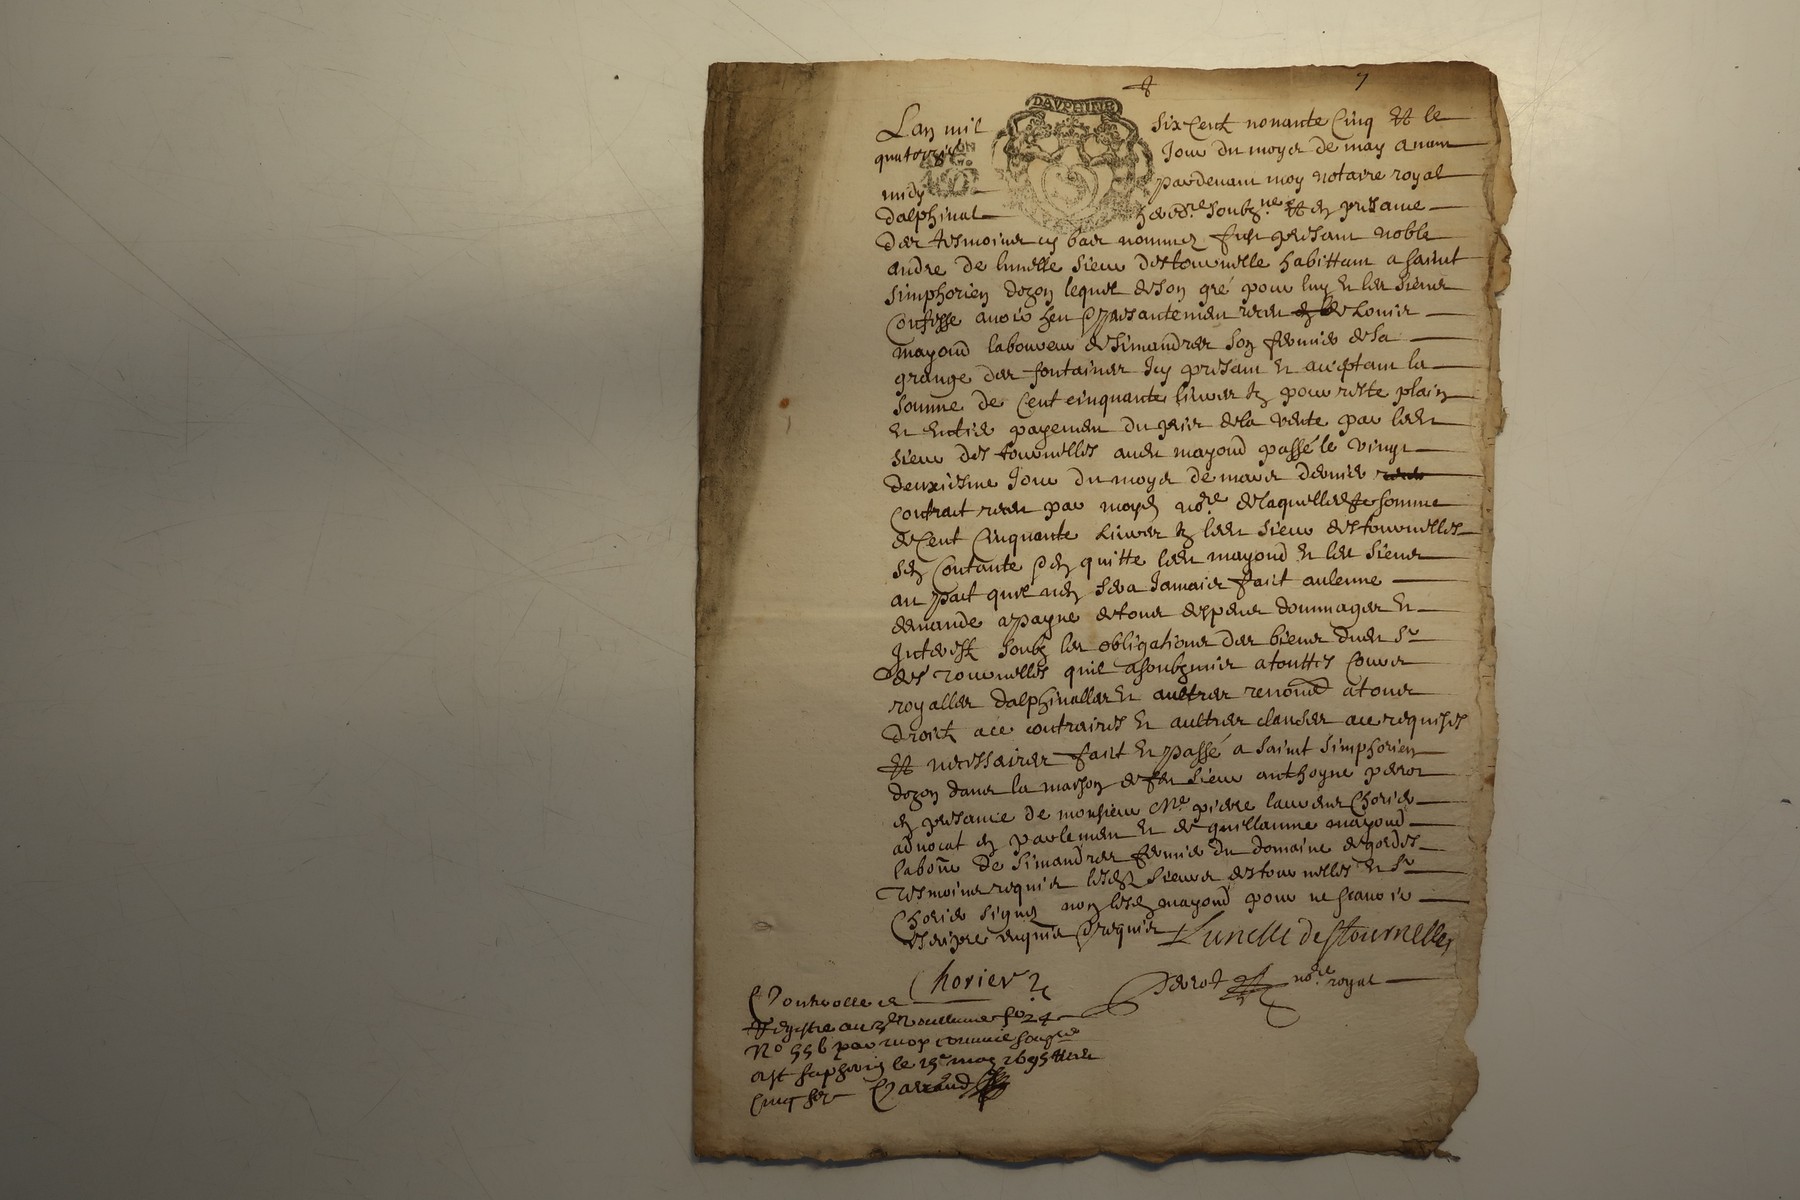 7
DAVPHINE
Lan mil six Cent nonante Cinq Et le
quatorzie Jour du moys de may avant
midy pardevant moy notaire royal
dalphinal hered.re soubz.ne Et en presance
des tesmoins cy bas nommez fust presant noble
andre de lunelle sieur destournelle habittant a saint
simphorien dozon lequel de son gré pour luy et les siens
Confesse avoir heu presantement receu de Louis
mayoud laboureur de simandres son fermier de la
grange des fontaines Icy presant et acceptant la
somme de Cent cinquante livres pour reste plain
et entier payement du prix de la vente par ledit
sieur des tournelles audit mayoud passé le vingt
deuxiesme Jour du moys de mars dernier
contrat receu par moyd no.re de laquelle somme
de Cent Cinquante Livres ledit sieur destournelles
sen Contante en quitte ledit mayoud et les siens
au pait quil nen sera Jamais fait aulcune
demande a payne de tous despens dommages et
Interestz soubz les obligations des biens dudit sr
des tournelles quil a soubzmis a touttes Cours
royalles dalphinalles et aultres renoncé a tous
droitz a ce contraires et aultres clauses a ce requises
Et necessaires fait et passé a saint simphorien
dozon dans la maison de feu sieur anthoyne perrot
en presance de monsieur Me pierre laurens Chorier
advocat en parlement et de guillaume mayoud
labour de simandres fermier du domaine de gordes
tesmoins requis lesdits sieurs destournelles et sr
Chorier signés non lesd mayoud pour ne scavoir
escripre enquis requis Lunelle destournelles
Chorier Perrot no.re royal
Controlle et
Registre au 3e vollume fo 24
No 556 par moy commis soubz.ne
a St saphorin le 15e may 1695
Cinq solz